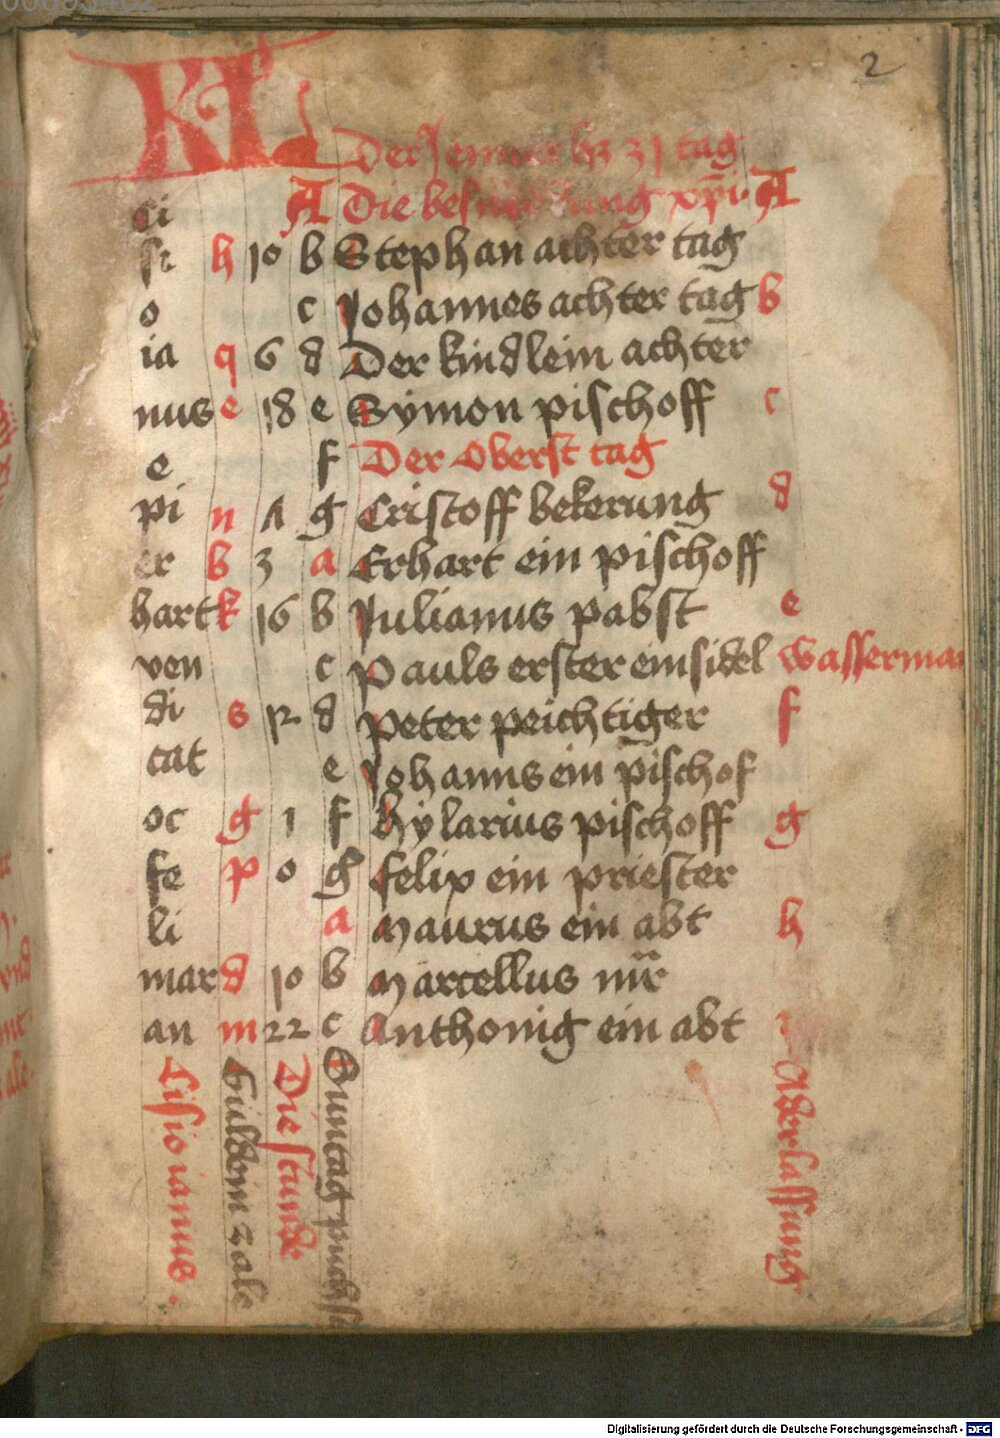 2
KL
Der Jenner hz 31 tag
ci A Die besneydung xpi A
si h 10 b Stephan achter tag
o c Johannes achter tag b
ia q 6 d Der kindlein achter
nus e 18 e Symon pischoff c
e f Der oberst tag
pi n ʌ g Cristoff bekerung d
er b 3 a Erhart ein pischoff
hart k 16 b Julianus pabst e
ven c Pauls erster einsidel wasserman
di s 12 d Peter peichtiger f
cat e Johanns ein pischof
oc g 1 f Hylarius pischoff g
fe p 0 g felix ein priester
li a Maurus ein abt h
mar d 10 b Marcellus mr
an m 22 c Anthonig ein abt
Cisio ianus.
Gulden zale
Die stunde
Suntag puchst
Aderlassung
Digitalisierung gefördert durch die Deutsche Forschungsgemeinschaft - DFG